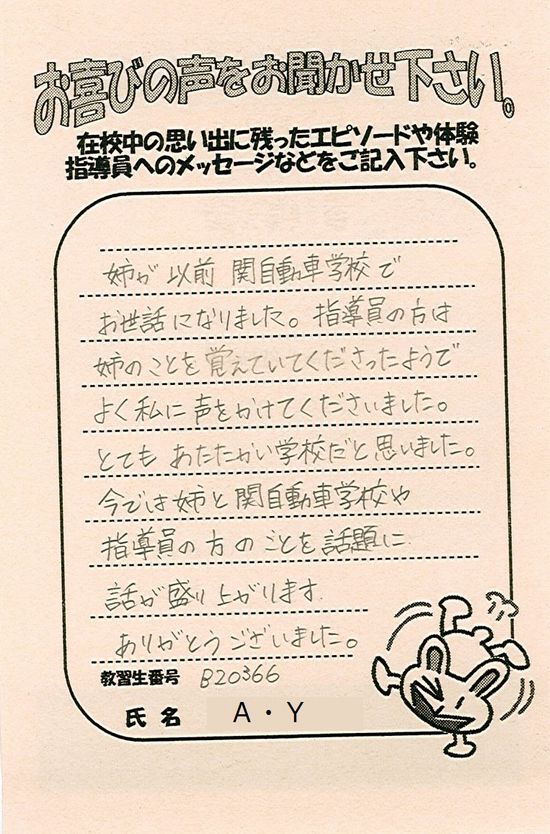 お喜びの声をお聞かせ下さい。
在校中の思い出に残ったエピソードや体験
指導員へのメッセージなどをご記入下さい。
姉が以前関自動車学校で
お世話になりました。指導員の方は
姉のことを覚えていてくださったようで
よく私に声をかけてくださいました。
とてもあたたかい学校だと思いました。
今では姉と関自動車学校や
指導員の方のことを話題に
話が盛り上がります
ありがとうございました。
教習生番号 B20366
氏名 A・Y